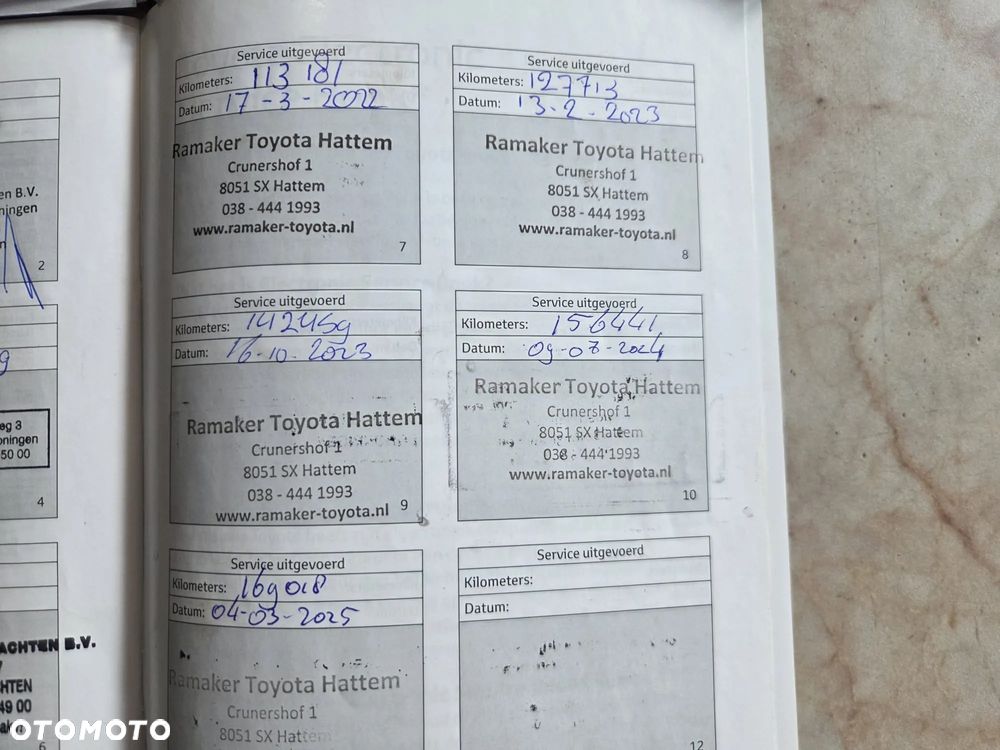 en B.V.
ningen
n
2
g
eg 3
oningen
50 00
4
ACHTEN B.V.
7
HTEN
49 00
6
Service uitgevoerd
Kilometers: 113 181
Datum: 17-3-2022
Ramaker Toyota Hattem
Crunershof 1
8051 SX Hattem
038 - 444 1993
www.ramaker-toyota.nl
7
Service uitgevoerd
Kilometers: 127713
Datum: 13-2-2023
Ramaker Toyota Hattem
Crunershof 1
8051 SX Hattem
038 - 444 1993
www.ramaker-toyota.nl
8
Service uitgevoerd
Kilometers: 142459
Datum: 16-10-2023
Ramaker Toyota Hattem
Crunershof 1
8051 SX Hattem
038 - 444 1993
www.ramaker-toyota.nl
9
Service uitgevoerd
Kilometers: 156441
Datum: 09-07-2024
Ramaker Toyota Hattem
Crunershof 1
8051 SX Hattem
038 - 444 1993
www.ramaker-toyota.nl
10
Service uitgevoerd
Kilometers: 169018
Datum: 04-03-2025
Ramaker Toyota Hattem
Crunershof 1
8051 SX Hattem
Service uitgevoerd
Kilometers:
Datum:
12
OTOMOTO